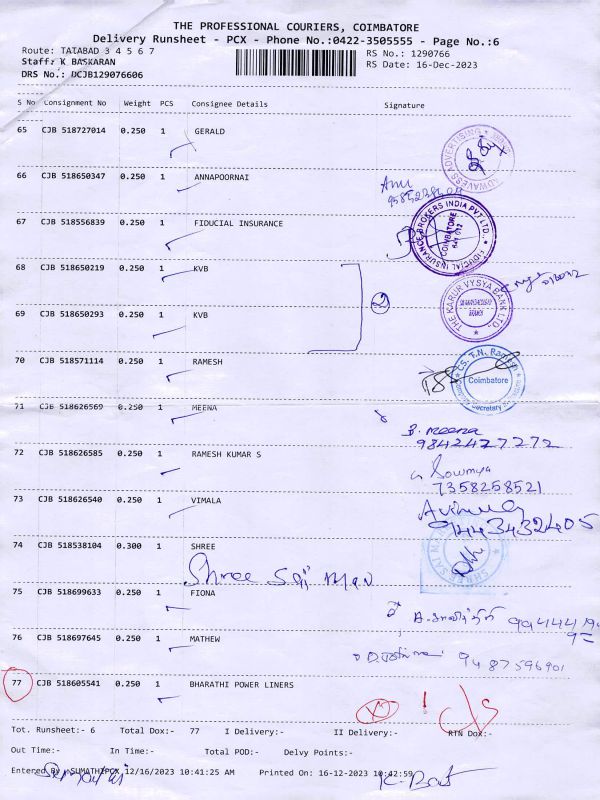 THE PROFESSIONAL COURIERS, COIMBATORE
Delivery Runsheet - PCX - Phone No.:0422-3505555 - Page No.:6
Route: TATABAD 3 4 5 6 7 RS No.: 1290766
Staff: K BASKARAN RS Date: 16-Dec-2023
DRS No.: DCJB129076606
S No Consignment No Weight PCS Consignee Details Signature
65 CJB 518727014 0.250 1 GERALD
66 CJB 518650347 0.250 1 ANNAPOORNAI
67 CJB 518556839 0.250 1 FIDUCIAL INSURANCE
FIDUCIAL INSURANCE BROKERS INDIA PVT LTD.,
COIMBATORE
68 CJB 518650219 0.250 1 KVB
2
69 CJB 518650293 0.250 1 KVB
THE KARUR VYSYA BANK LTD.,
70 CJB 518571114 0.250 1 RAMESH
CS. T.N. Ramesh
Coimbatore
Secretary
71 CJB 518626569 0.250 1 MEENA
B. Meena
9842427272
72 CJB 518626585 0.250 1 RAMESH KUMAR S
Sowmya
7358258521
73 CJB 518626540 0.250 1 VIMALA
9443432405
74 CJB 518538104 0.300 1 SHREE
Shree Sai
75 CJB 518699633 0.250 1 FIONA
76 CJB 518697645 0.250 1 MATHEW
9487596901
77 CJB 518605541 0.250 1 BHARATHI POWER LINERS
Tot. Runsheet:- 6 Total Dox:- 77 I Delivery:- II Delivery:- RTN Dox:-
Out Time:- In Time:- Total POD:- Delvy Points:-
Entered By SUMATHIPCX 12/16/2023 10:41:25 AM Printed On: 16-12-2023 10:42:59